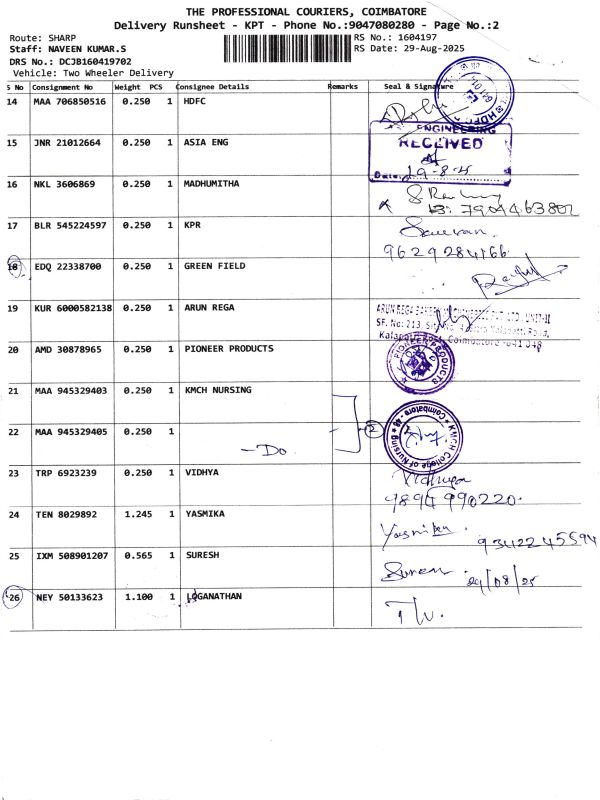 THE PROFESSIONAL COURIERS, COIMBATORE
Delivery Runsheet - KPT - Phone No.:9047080280 - Page No.:2
Route: SHARP
RS No.: 1604197
Staff: NAVEEN KUMAR.S
RS Date: 29-Aug-2025
DRS No.: DCJB160419702
Vehicle: Two Wheeler Delivery
S No Consignment No Weight PCS Consignee Details Remarks Seal & Signature
14 MAA 706850516 0.250 1 HDFC
ENGINEERING
15 JNR 21012664 0.250 1 ASIA ENG RECEIVED
Date: 29-8-25
16 NKL 3606869 0.250 1 MADHUMITHA
17 BLR 545224597 0.250 1 KPR
18 EDQ 22338700 0.250 1 GREEN FIELD
19 KUR 6000582138 0.250 1 ARUN REGA
20 AMD 30878965 0.250 1 PIONEER PRODUCTS PIONEER PRODUCTS
21 MAA 945329403 0.250 1 KMCH NURSING
22 MAA 945329405 0.250 1 -Do 2 KMCH College of Nursing Coimbatore - 48
23 TRP 6923239 0.250 1 VIDHYA Vidhya
9894990220.
24 TEN 8029892 1.245 1 YASMIKA Yasmika 9342245594
25 IXM 508901207 0.565 1 SURESH Suresh 29/08/25
26 NEY 50133623 1.100 1 LOGANATHAN